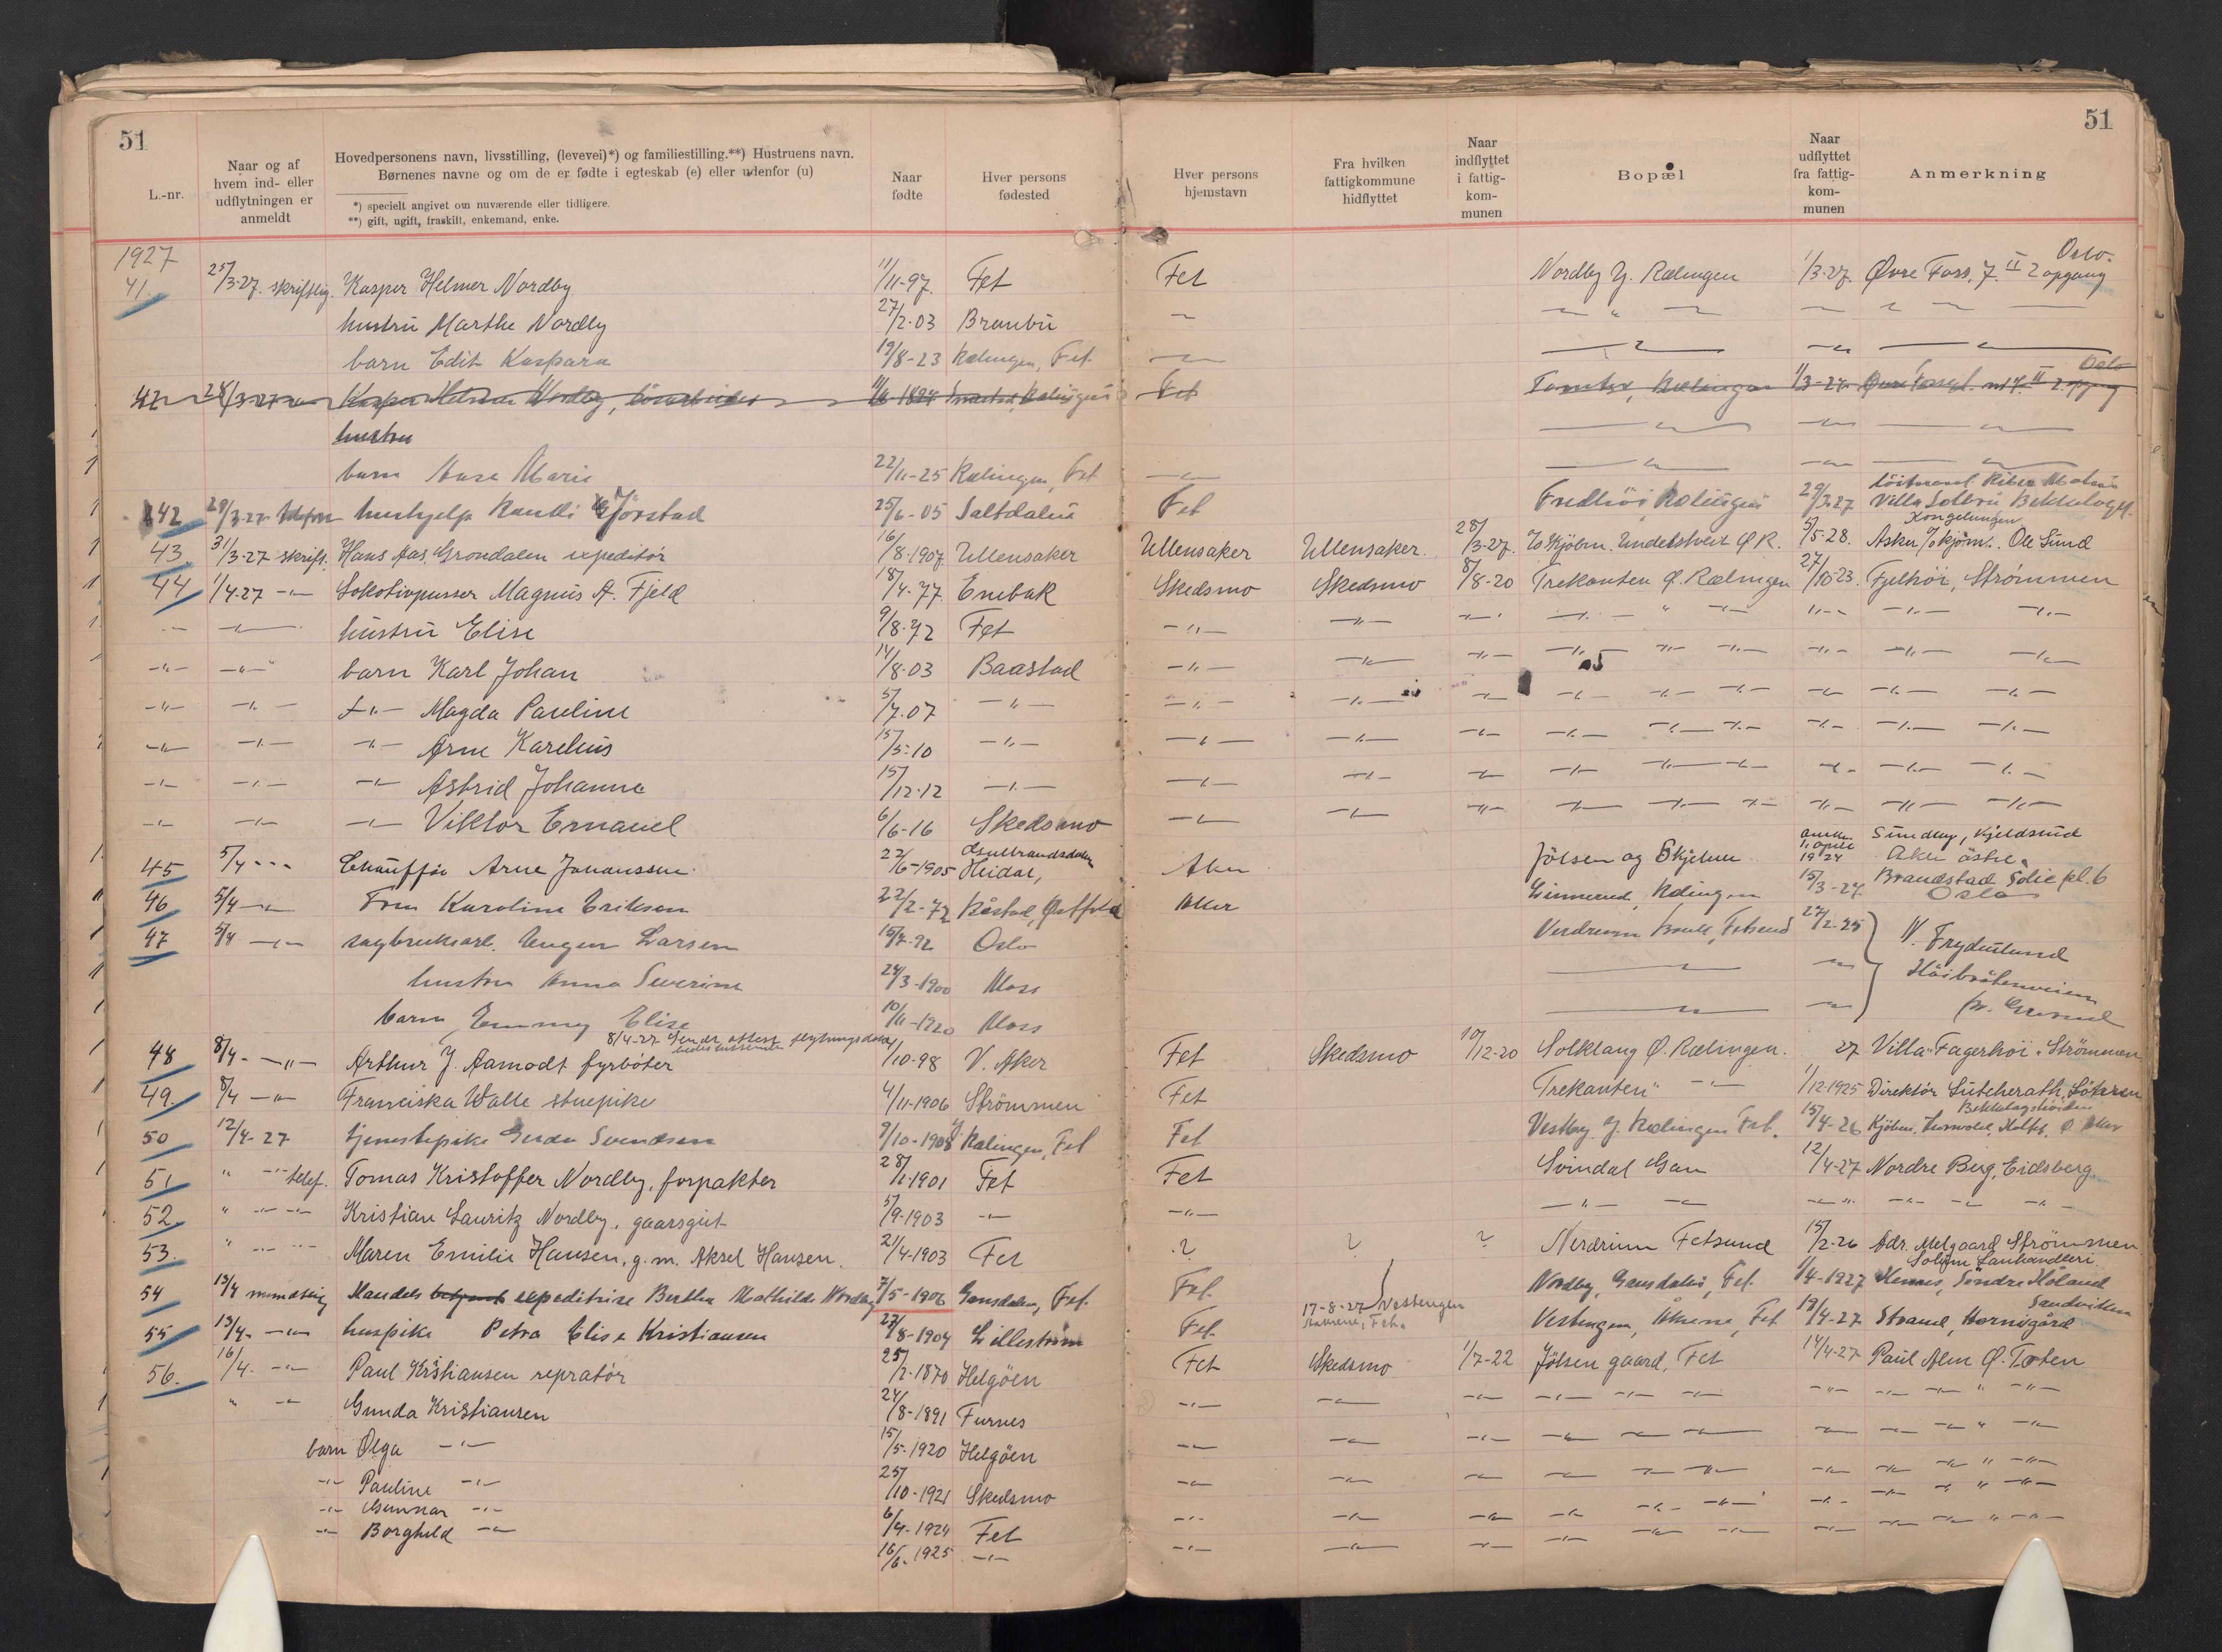 51
51
L.-nr.
Naar og af hvem ind- eller udflytningen er anmeldt
Hovedpersonens navn, livsstilling, (levevei)*) og familiestilling.**) Hustruens navn.
Børnenes navne og om de er fødte i egteskab (e) eller udenfor (u)
*) specielt angivet om nuværende eller tidligere.
**) gift, ugift, fraskilt, enkemand, enke.
Naar fødte
Hver persons fødested
Hver persons hjemstavn
Fra hvilken fattigkommune hidflyttet
Naar indflyttet i fattig-kom-munen
Bopæl
Naar udflyttet fra fattig-kom-munen
Anmerkning
1927
41. 25/3-27. skriftlig. Kasper Helmer Nordby 11/11-97. Fet Fet Nordby Y. Rælingen 1/3-27. Øvre Foss. 7. II 2 opgang Oslo.
hustru Marthe Nordby 27/2-03 Branbu
barn Edit Kaspara 19/8-23 Rælingen, Fet
Kasper Helmer Nordby, Fet Rælingen 1/3-27 Oslo
hustru
barn Aase Marie 22/11-25 Rælingen, Fet
42 29/3-27 hushjelp Rauthi Gjørstad 25/6-05 Saltdalen Fet Fredhöi, Rælingen 29/3-27 Villa Solbu Bekkelaget
43. 31/3-27 skrift. Hans Aas, Grondalen expeditör 16/8-1907 Ullensaker Ullensaker Ullensaker. 28/3-27. Ø R. 5/5-28. Asker Kongelungen Ole Sund
44 1/4-27 -"- Lokotivpusser Magnus A. Fjeld 18/4-77 Enebak Skedsmo Skedsmo 8/8-20 Trekanten Ø. Rælingen 27/10-23. Fjelhöi, Strömmen
-"- hustru Elise 9/8-72 Fet -"-
-"- -"- barn Karl Johan 14/8-03 Baastad -"-
-"- -"- -"- Magda Pauline 5/7-07 -"-
-"- -"- -"- Arne Karelius 15/5-10 -"-
-"- -"- -"- Astrid Johanne 15/12-12 -"-
-"- -"- -"- Viktor Emanuel 6/6-16 Skedsmo -"-
45 5/4 -"- Chauffør Arne Johanssen 22/6-1905 Heidal, Gudbrandsdalen Aker Jölsen og Skjelver 1. april 1924 Sundby, Kjeldsrud Aker östre
46 5/4 -"- Fru Karoline Eriksen 22/2-72 Båstad, Østfold Aker Linnerud, Rælingen 15/3-27 Brandstad Solie pl. 6 Oslo
47 5/4 -"- sagbruksarb. Eugen Larsen 15/7-92 Oslo Nerdrum bruk, Fetsund 27/2-25 V. Frydenlund
hustru Anna Severine 24/3-1900 Moss Höibråtenveien
barn, Emmy Elise 10/11-1920 Moss pr. Grorud
8/4-27 sendt attest
48 8/4- -"- Arthur J. Aamodt fyrböter 1/10-98 V. Aker Fet Skedsmo 10/12-20 Solklang Ø. Rælingen. 27 Villa "Fagerhöi" Strömmen
49. 8/4 -"- Franciska Walle stuepike 4/11-1906 Strömmen Fet Trekanten" -"- 1/12-1925 Direktör Lütcherath, Bekkelagshöiden
50 12/4-27 tjenestepike Gerda Svendsen 9/10-1908 Rælingen, Fet Fet Vestby Y. Rælingen Fet. 15/4-26 Kjöbm. Ø Aker
51 " -"- telef. Tomas Kristoffer Nordby, forpakter 28/1-1901 Fet Fet Svindal Gan 12/4-27 Nordre Berg, Eidsberg
52 " -"- Kristian Lauritz Nordby, gaarsgut 5/9-1903 -"- -"-
53. " -"- Maren Emilie Hansen, g. m. Aksel Hansen. 21/4-1903 Fet ? ? ? Nerdrum Fetsund 15/2-26 Adr. Melgaard Strömmen
54 13/4 mundtlig Handels betjent expeditrise Bertha Mathilde Nordby 7/5-1906 Gansdalen, Fet. Fet. Nordby, Gansdalen, Fet. 1/4-1927 Hemnes, Söndre Höland
55 13/4. -"- huspike Petra Elise Kristiansen 23/8-1904 Lilleström Fet. 17-8-27 Vestengen Vestengen, Fet 19/4-27 Strand, Hornigård Sandviken
56. 16/4. -"- Paul Kristiansen repratör 25/2-1870 Helgöen Fet Skedsmo 1/7-22 Jölsen gaard, Fet 14/4-27 Paul Alm Ø. Toten
" -"- Gunda Kristiansen 24/8-1891 Furnes -"-
barn Olga -"- 15/5-1920 Helgöen
-"- Pauline -"- 25/10-1921 Skedsmo
-"- Gunnar -"- 6/4-1924 Fet
-"- Borghild -"- 16/6-1925 -"-